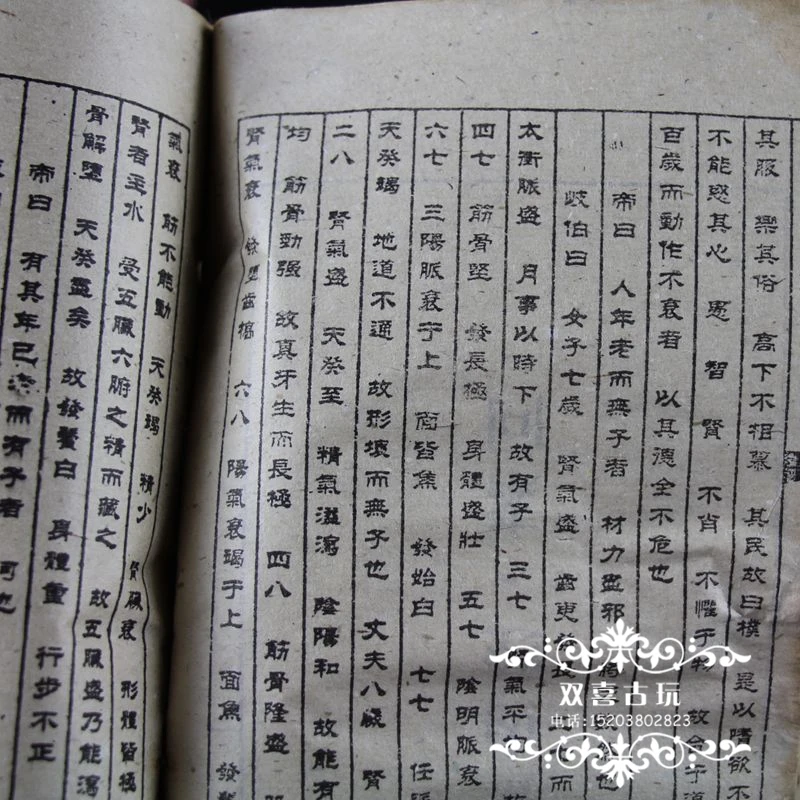 其服 樂其俗 高下不相慕 其民故曰樸 是以嗜欲不
不能惑其心 愚 智 賢 不肖 不懼于物 故合于道
百歲而動作不衰者 以其德全不危也
帝曰 人年老而無子者 材力盡邪 然也
岐伯曰 女子七歲 腎氣盛 齒更 長 而
太衝脈盛 月事以時下 故有子 三七 腎氣平均
四七 筋骨堅 發長極 身體盛壯 五七 陰明脈衰
六七 三陽脈衰于上 面皆焦 發始白 七七 任脈
天癸竭 地道不通 故形壞而無子也 丈夫八歲 腎
二八 腎氣盛 天癸至 精氣溢瀉 陰陽和 故能有
均 筋骨勁强 故真牙生而長極 四八 筋骨隆盛
腎氣衰 發墮齒槁 六八 陽氣衰竭于上 面焦 發
氣衰 筋不能動 天癸竭 精少 腎臟衰 形體皆極
腎者主水 受五臟六腑之精而藏之 故五臟盛乃能瀉
骨解墮 天癸盡矣 故發鬢白 身體重 行步不正
帝曰 有其年已老而有子者 何也
双喜古玩
电话:15203802823